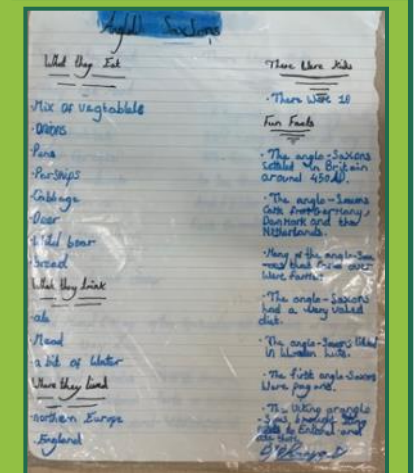 Anglo Saxons
What they Eat
·Mix of vegtabals
·Onions
·Peas
·Parsnips
·Cabbage
·Deer
·Wild boar
·bread
What they Drink
·ale
·Mead
·a bit of water
Where they lived
·northern Europe
·England
There Were Kids
·There Were 10
Fun Facts
·The anglo-Saxons
settled in Britain
around 450AD.
·The anglo-Saxons
Came from Germany,
Denmark and the
Netherlands
·Many of the anglo-Sax
that came over
Were Farmers
·The anglo-Saxons
had a very varied
diet.
·The anglo-Saxons lived
in Wooden huts.
·The first anglo-Saxons
Were pagans.
·The Viking or anglo
to England and